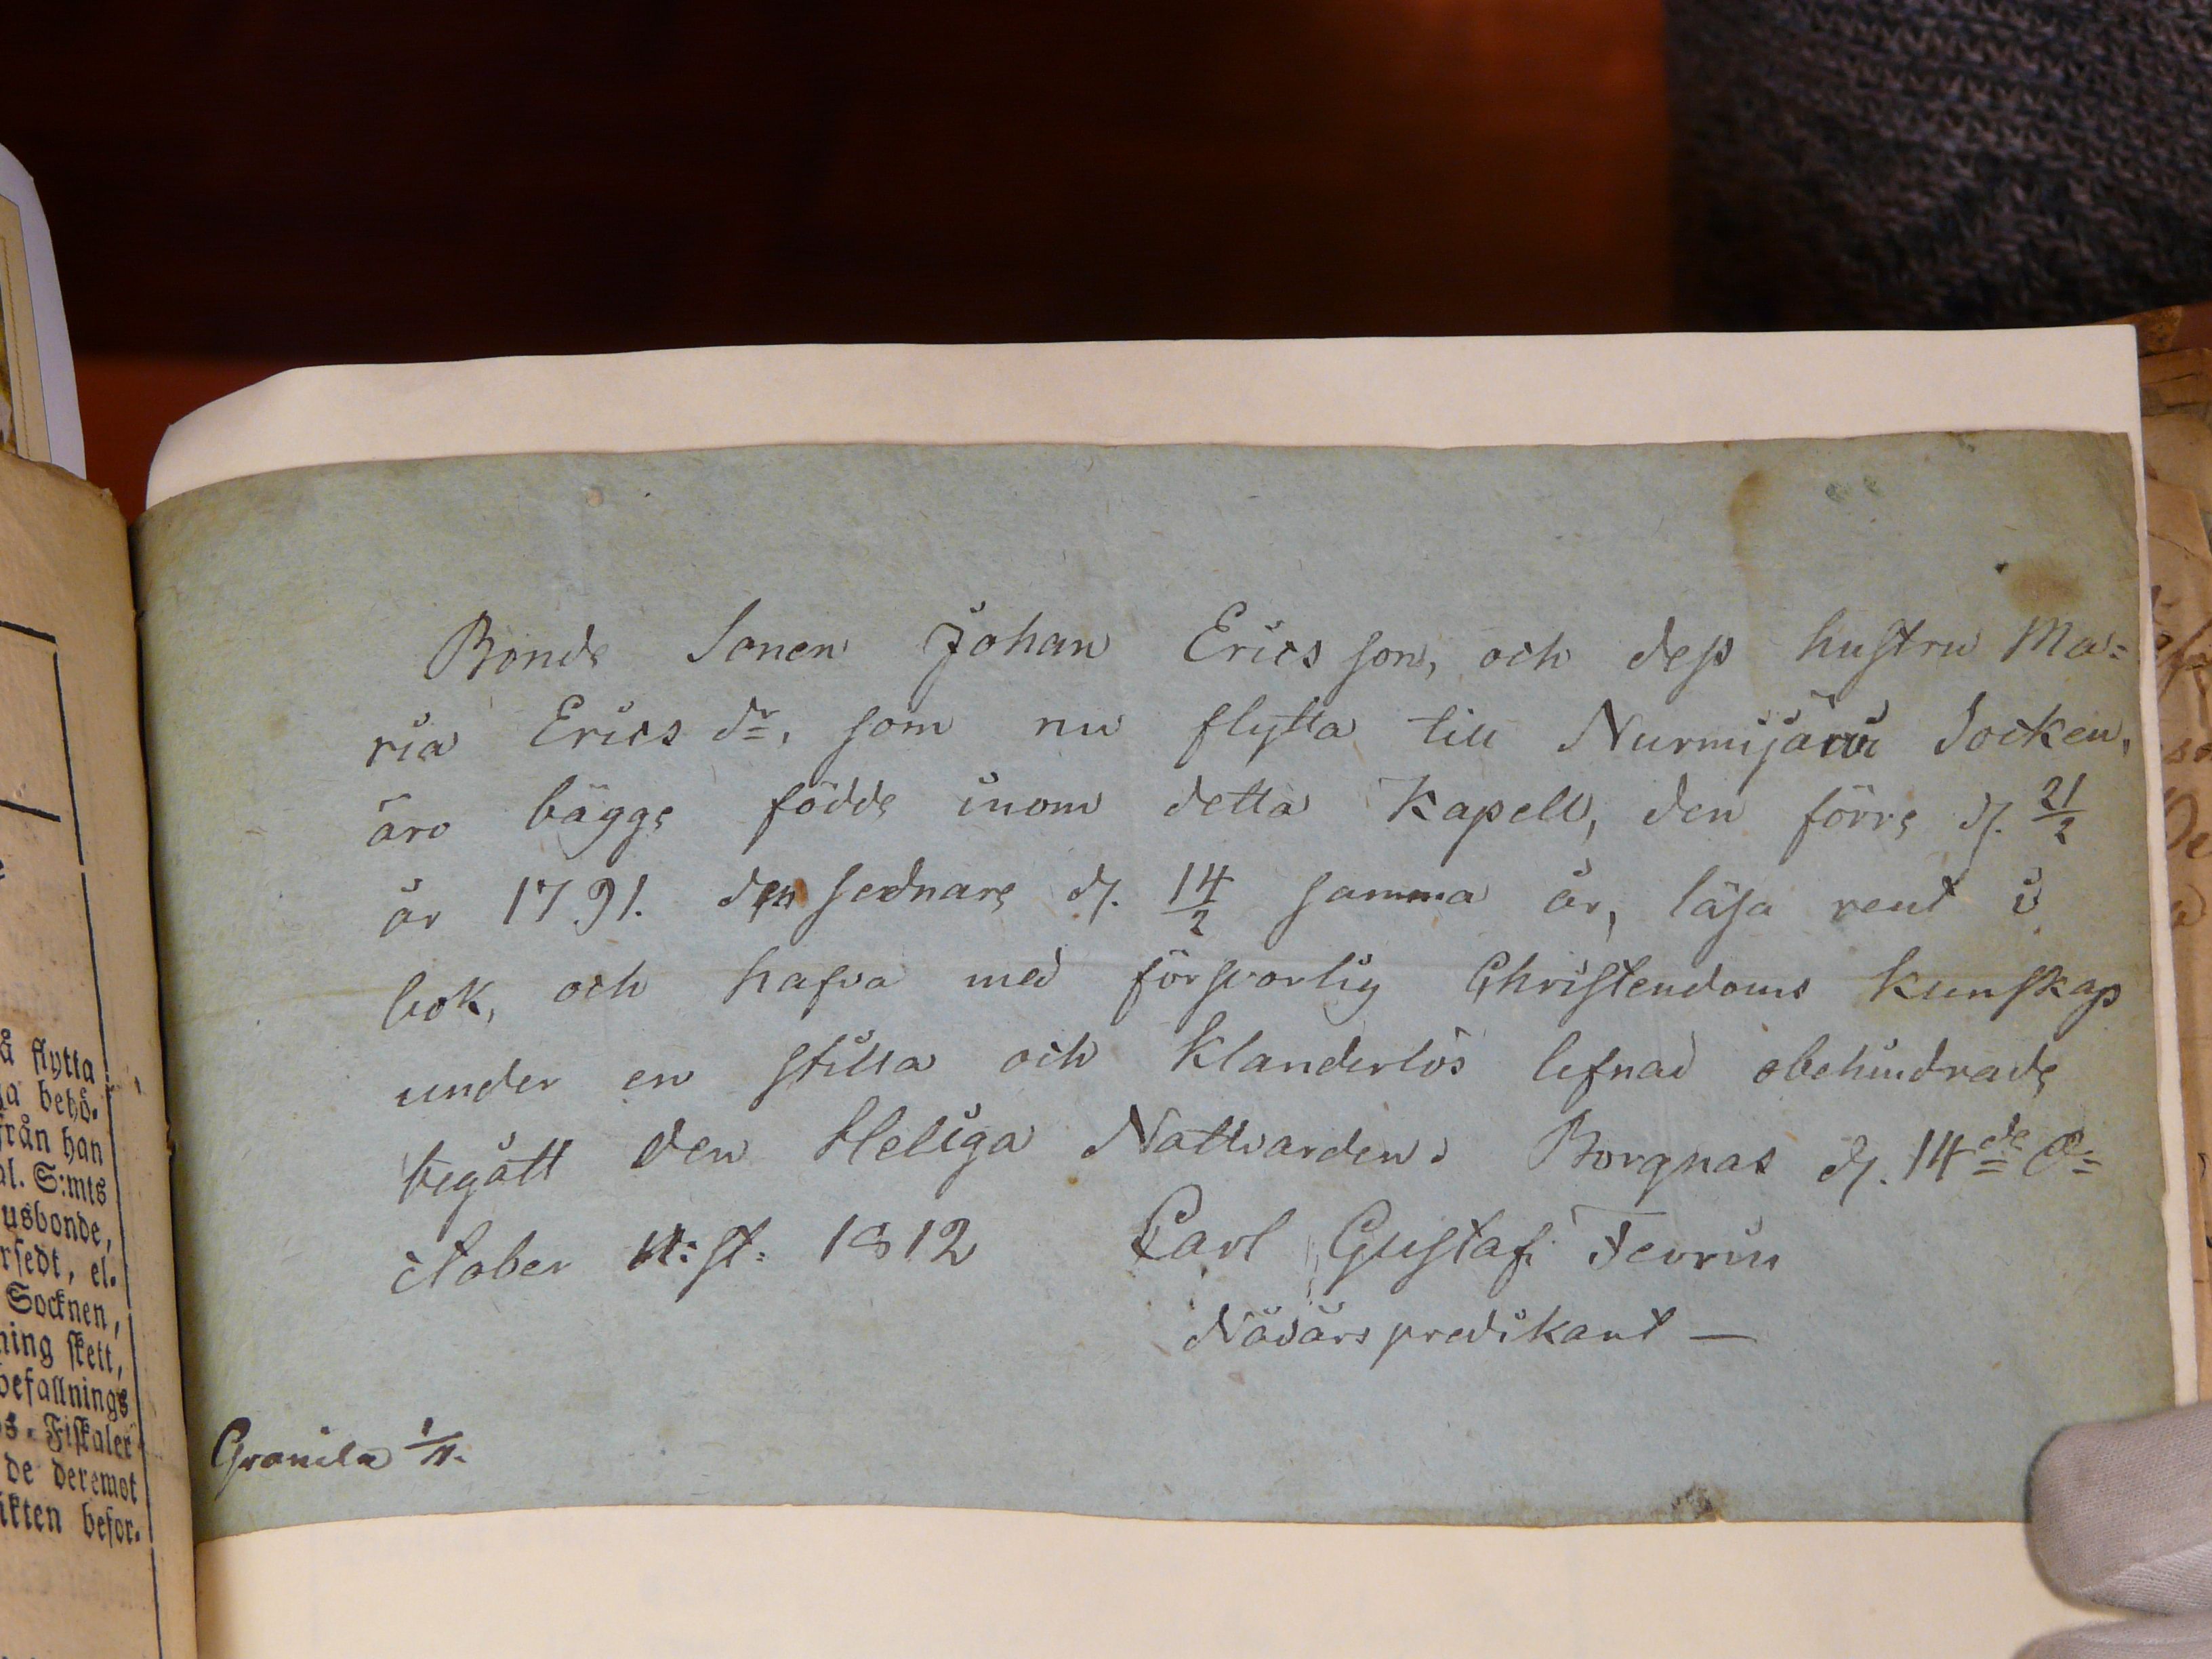 Bonde Sonen Johan Ericsson, och dess hustru Ma=
ria Erics dr, som nu flytta till Nurmijärvi Socken,
äro bägge födde inom detta Kapell, den förre d. 21/2
år 1791. den sednare d. 14/2 samma år, läsa rent i
bok, och hafva med försvarlig Christendoms kunskap
under en stilla och klanderlös lefnad obehindrade
begått den Heliga Nattvarden. Borgnäs d. 14de O=
ctober n: st: 1812 Carl Gustaf
Nådårs predikant —
Granila 1/11.
å flytta
a behö-
från han
al. S:mts
usbonde,
rsedt, el.
Socknen,
ning skett,
befallnings
s-Fiskaler
de deremot
ikten befor-